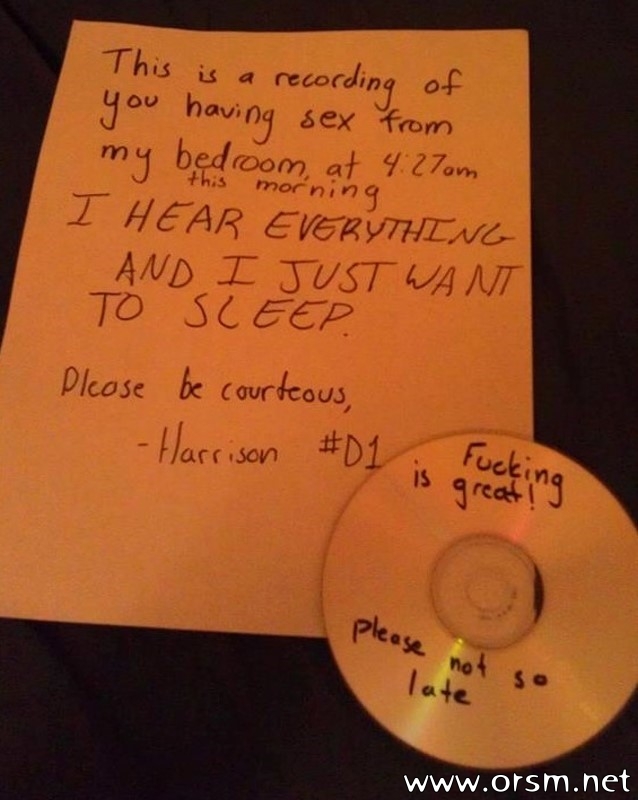 This is a recording of
you having sex from
my bedroom, at 4:27am
this morning
I HEAR EVERYTHING
AND I JUST WANT
TO SLEEP.
Please be courteous,
- Harrison #D1
Fucking
is great!
please not so
late
www.orsm.net